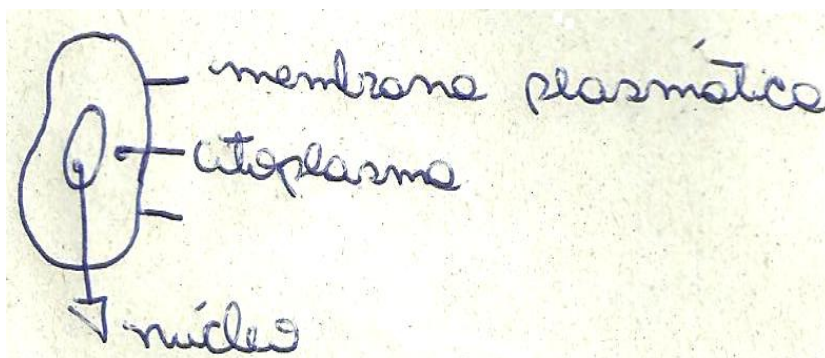 membrana plasmática
citoplasma
núcleo